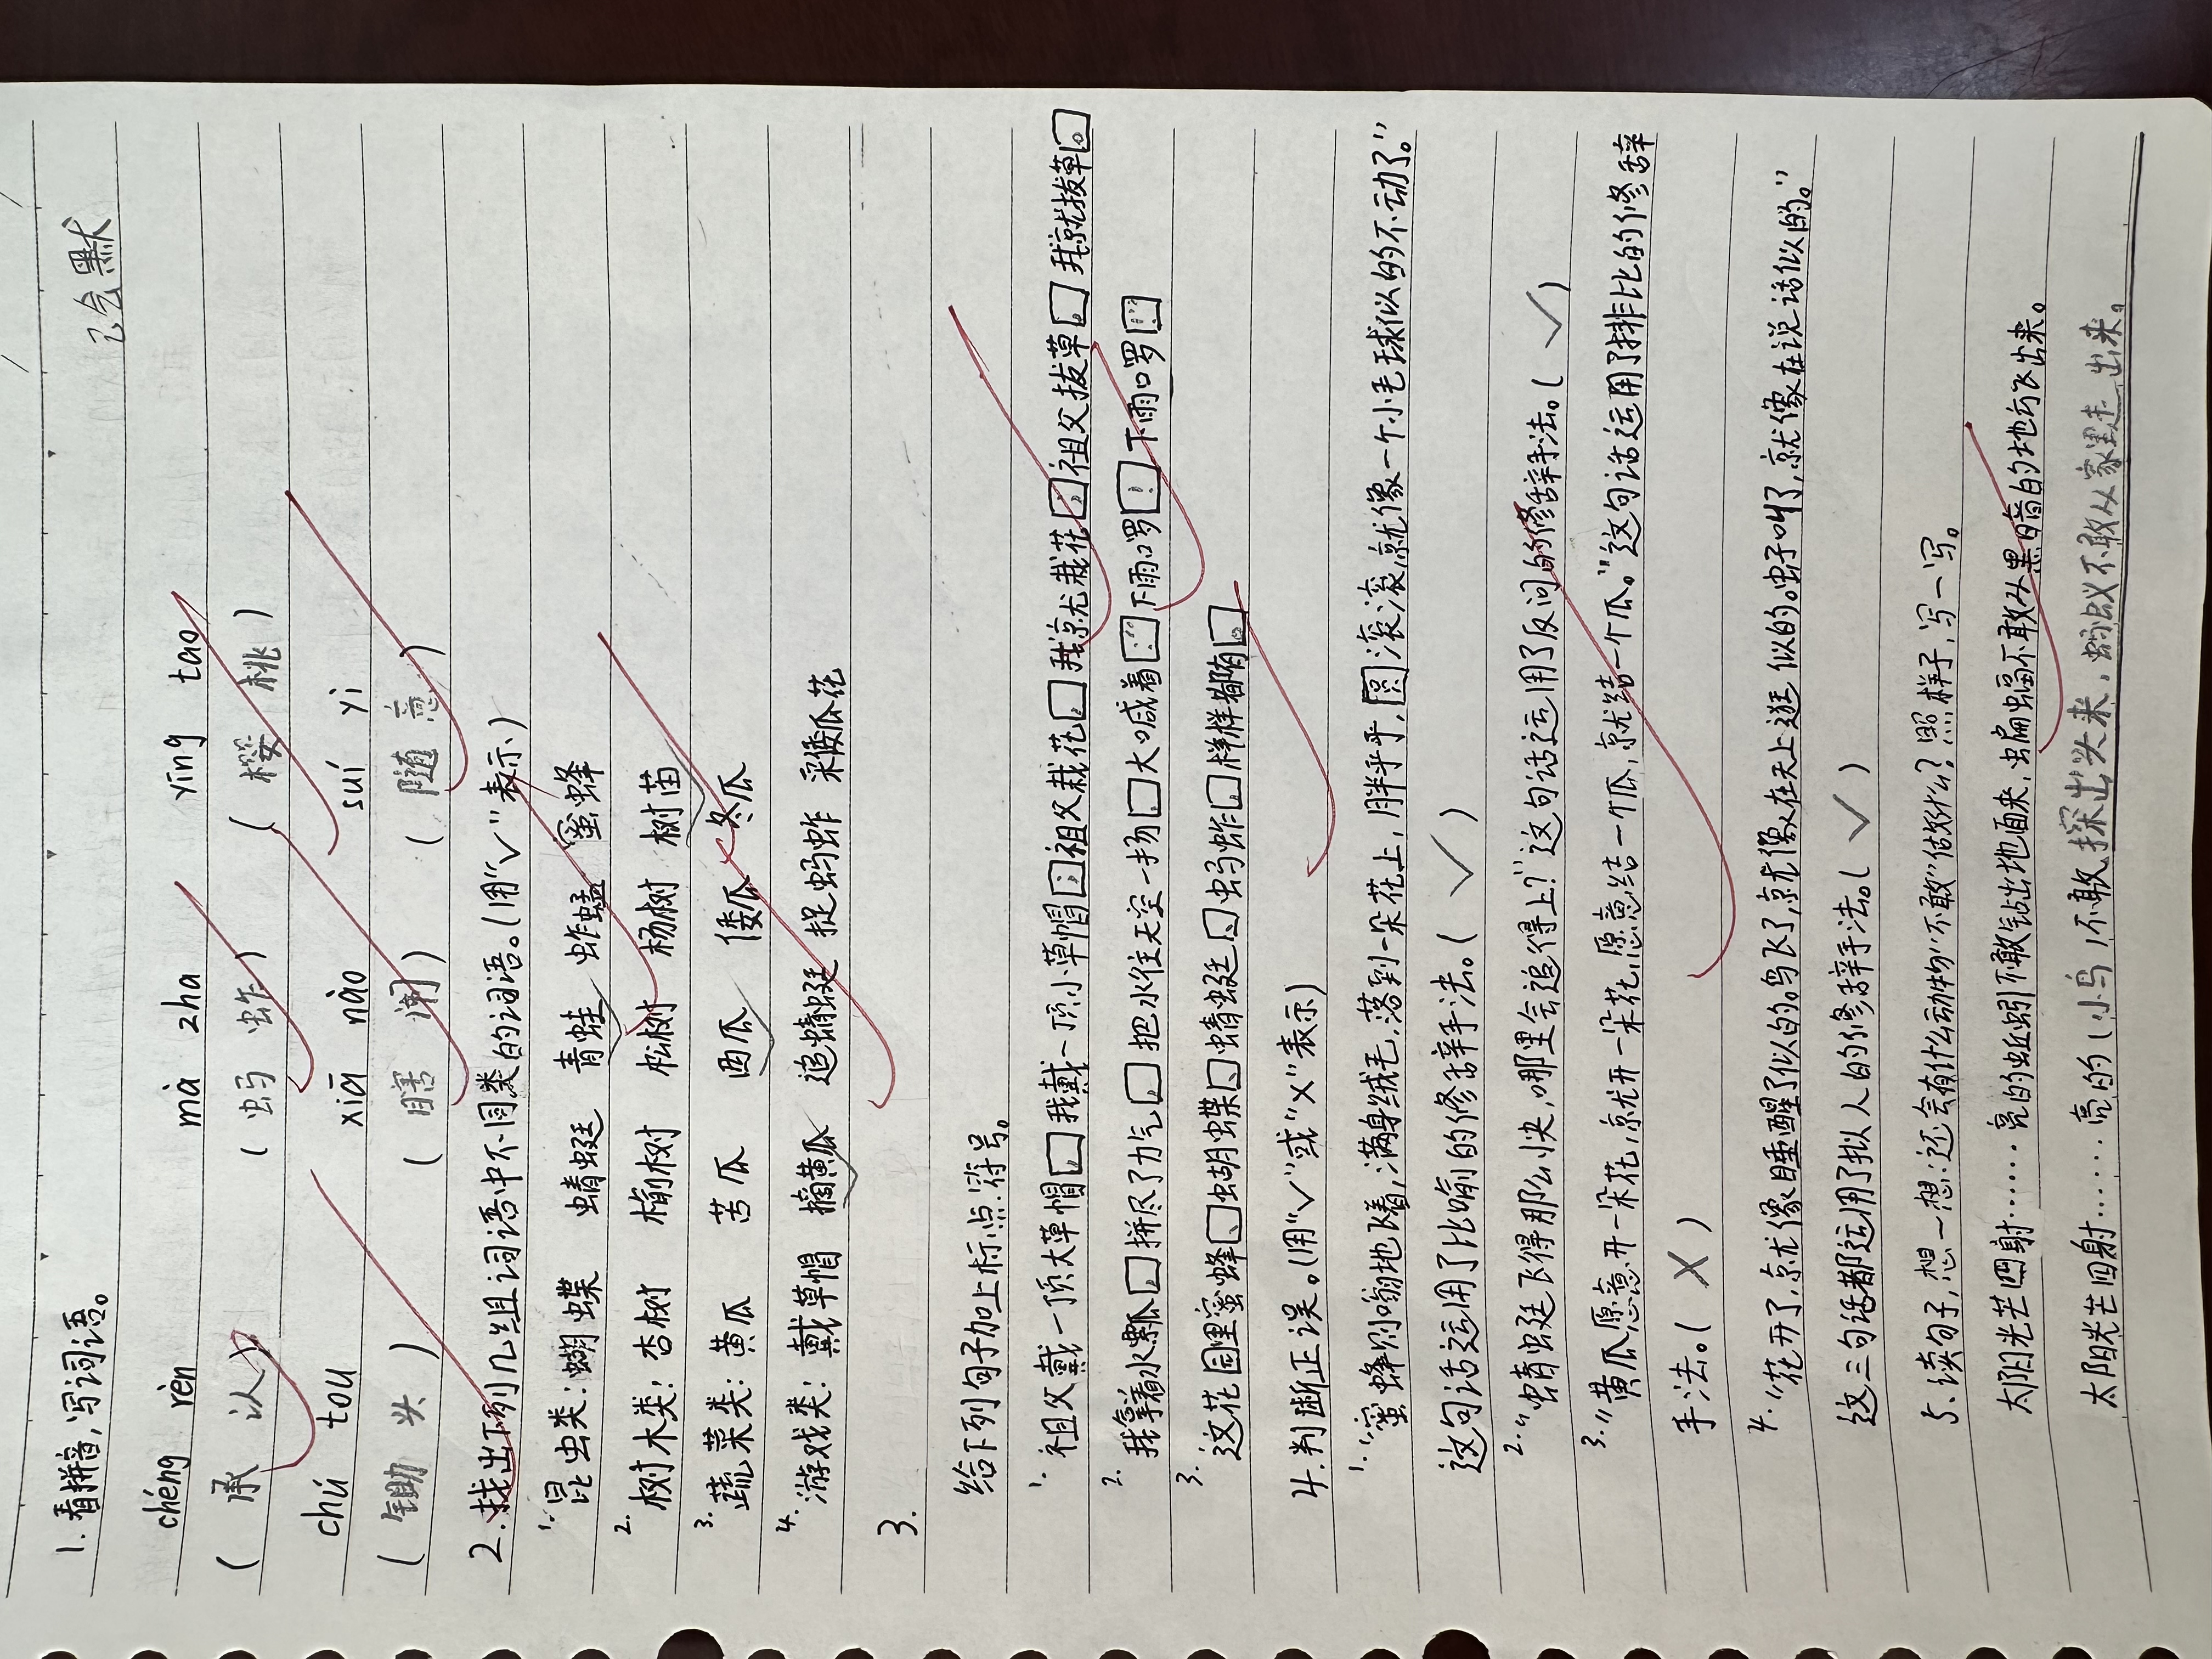 1. 看拼音,写词语。 已会默
chéng rèn mà zha yīng tao
( 承 认 ) ( 蚂 蚱 ) ( 樱 桃 )
chú tou xiā nào suí yì
( 锄 头 ) ( 瞎 闹 ) ( 随 意 )
2. 找出下列几组词语中不同类的词语。(用"√"表示)
1. 昆虫类: 蝴蝶 蜻蜓 青蛙 蚱蜢 蜜蜂
2. 树木类: 杏树 榆树 松树 杨树 树苗
3. 蔬菜类: 黄瓜 苦瓜 西瓜 倭瓜 冬瓜
4. 游戏类: 戴草帽 摘黄瓜 追蜻蜓 捉蚂蚱 采倭瓜花
3.
给下列句子加上标点符号。
1. 祖父戴一顶大草帽,我戴一顶小草帽;祖父栽花,我就栽花;祖父拔草,我就拔草。
2. 我拿着水瓢,拼尽了力气,把水往天空一扬,大喊着:"下雨啰!下雨啰!"
3. 这花园里蜜蜂、蝴蝶、蜻蜓、蚂蚱,样样都有。
4. 判断正误。(用"√"或"×"表示)
1. "蜜蜂则嗡嗡地飞着,满身绒毛,落到一朵花上,胖乎乎,圆滚滚,就像一个小毛球似的不动了。"
这句话运用了比喻的修辞手法。( √ )
2. "蜻蜓飞得那么快,哪里会追得上?"这句话运用了反问的修辞手法。( √ )
3. "黄瓜愿意开一朵花,就开一朵花,愿意结一个瓜,就结一个瓜。"这句话运用了排比的修辞
手法。( × )
4. "花开了,就像睡醒了似的。鸟飞了,就像在天上逛似的。虫子叫了,就像虫子在说话似的。"
这三句话都运用了拟人的修辞手法。( √ )
5、读句子,想一想:还会有什么动物"不敢"做什么?照样子,写一写。
太阳光芒四射……亮的蚯蚓不敢钻出地面来,蝙蝠不敢从黑暗的地方飞出来。
太阳光芒四射……亮的(小鸟)不敢探出头来,蚂蚁不敢从家里走出来。